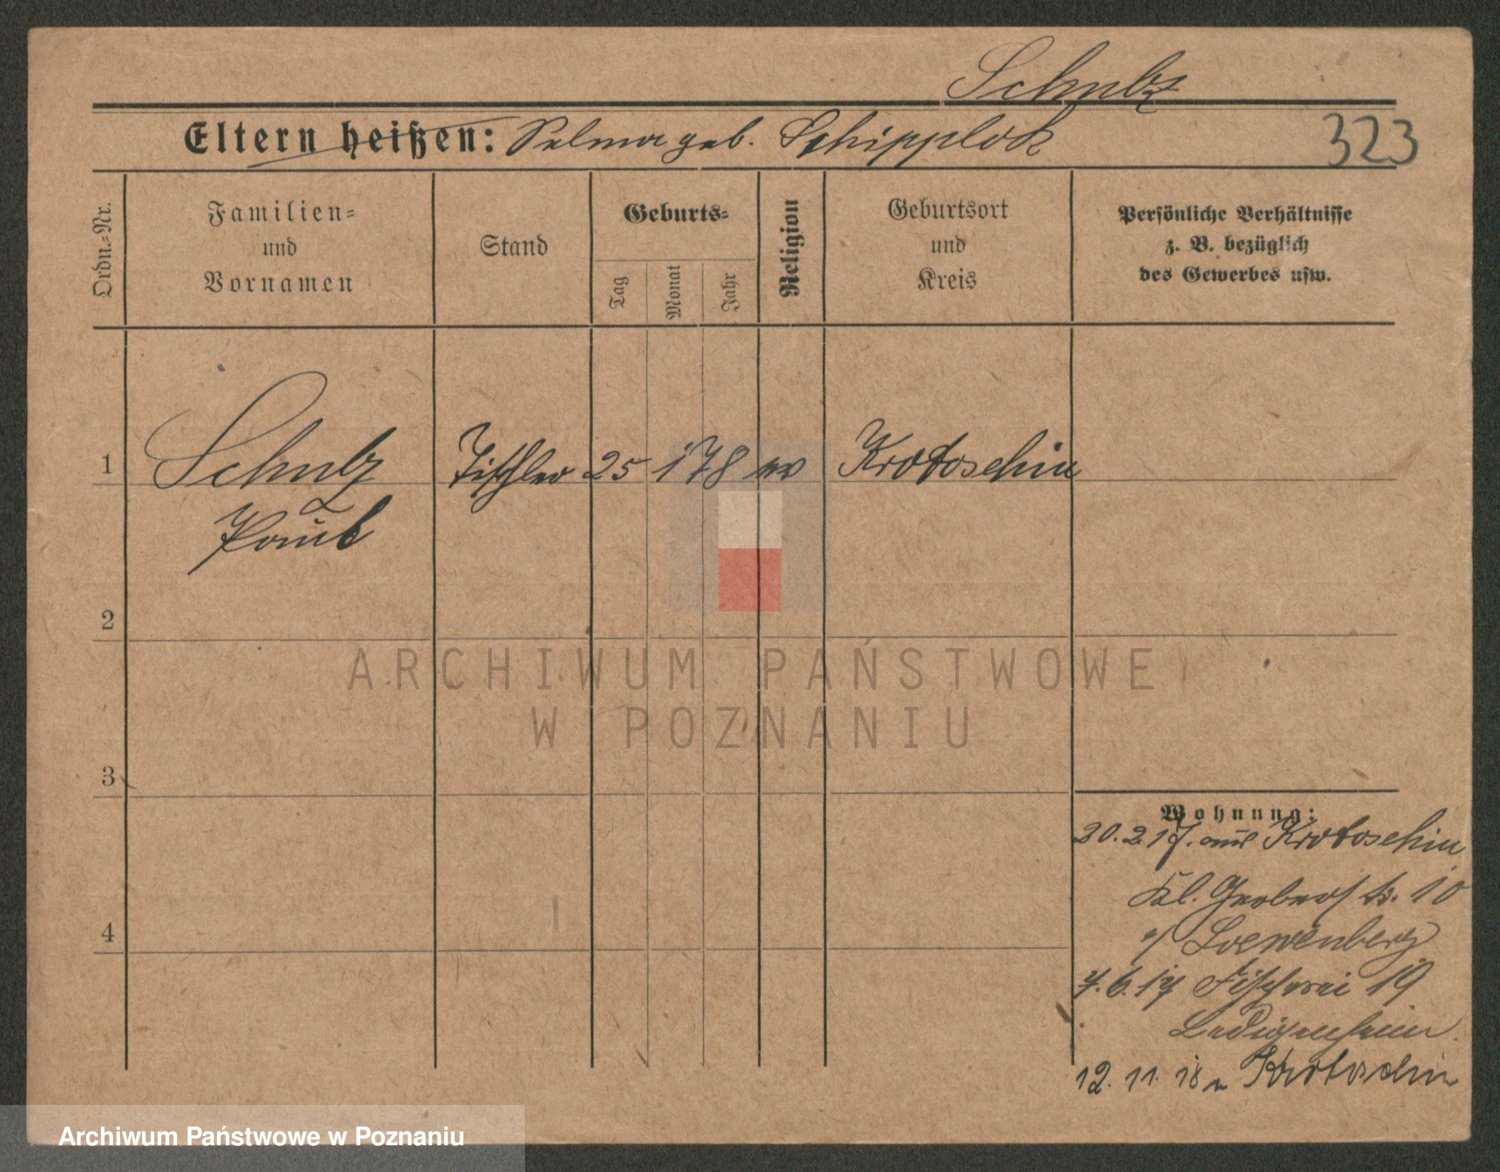 Schulz
Eltern heißen: Selma geb. Schipplock
323
Ordn.-Nr.
Familien-
und
Vornamen
Stand
Geburts-
Tag
Monat
Jahr
Religion
Geburtsort
und
Kreis
Persönliche Verhältnisse
z. B. bezüglich
des Gewerbes usw.
1 Schulz Tischler 25 1 78 ev Krotoschin
Paul
2
3
4
Wohnung:
30.3.17. aus Krotoschin
Kl. Gerberstr. 10
b/ Loewenberg
7.6.17 Fischerei 19
Ledigenheim
12. 11. 18 n Krotoschin
ARCHIWUM PAŃSTWOWE
W POZNANIU
Archiwum Państwowe w Poznaniu